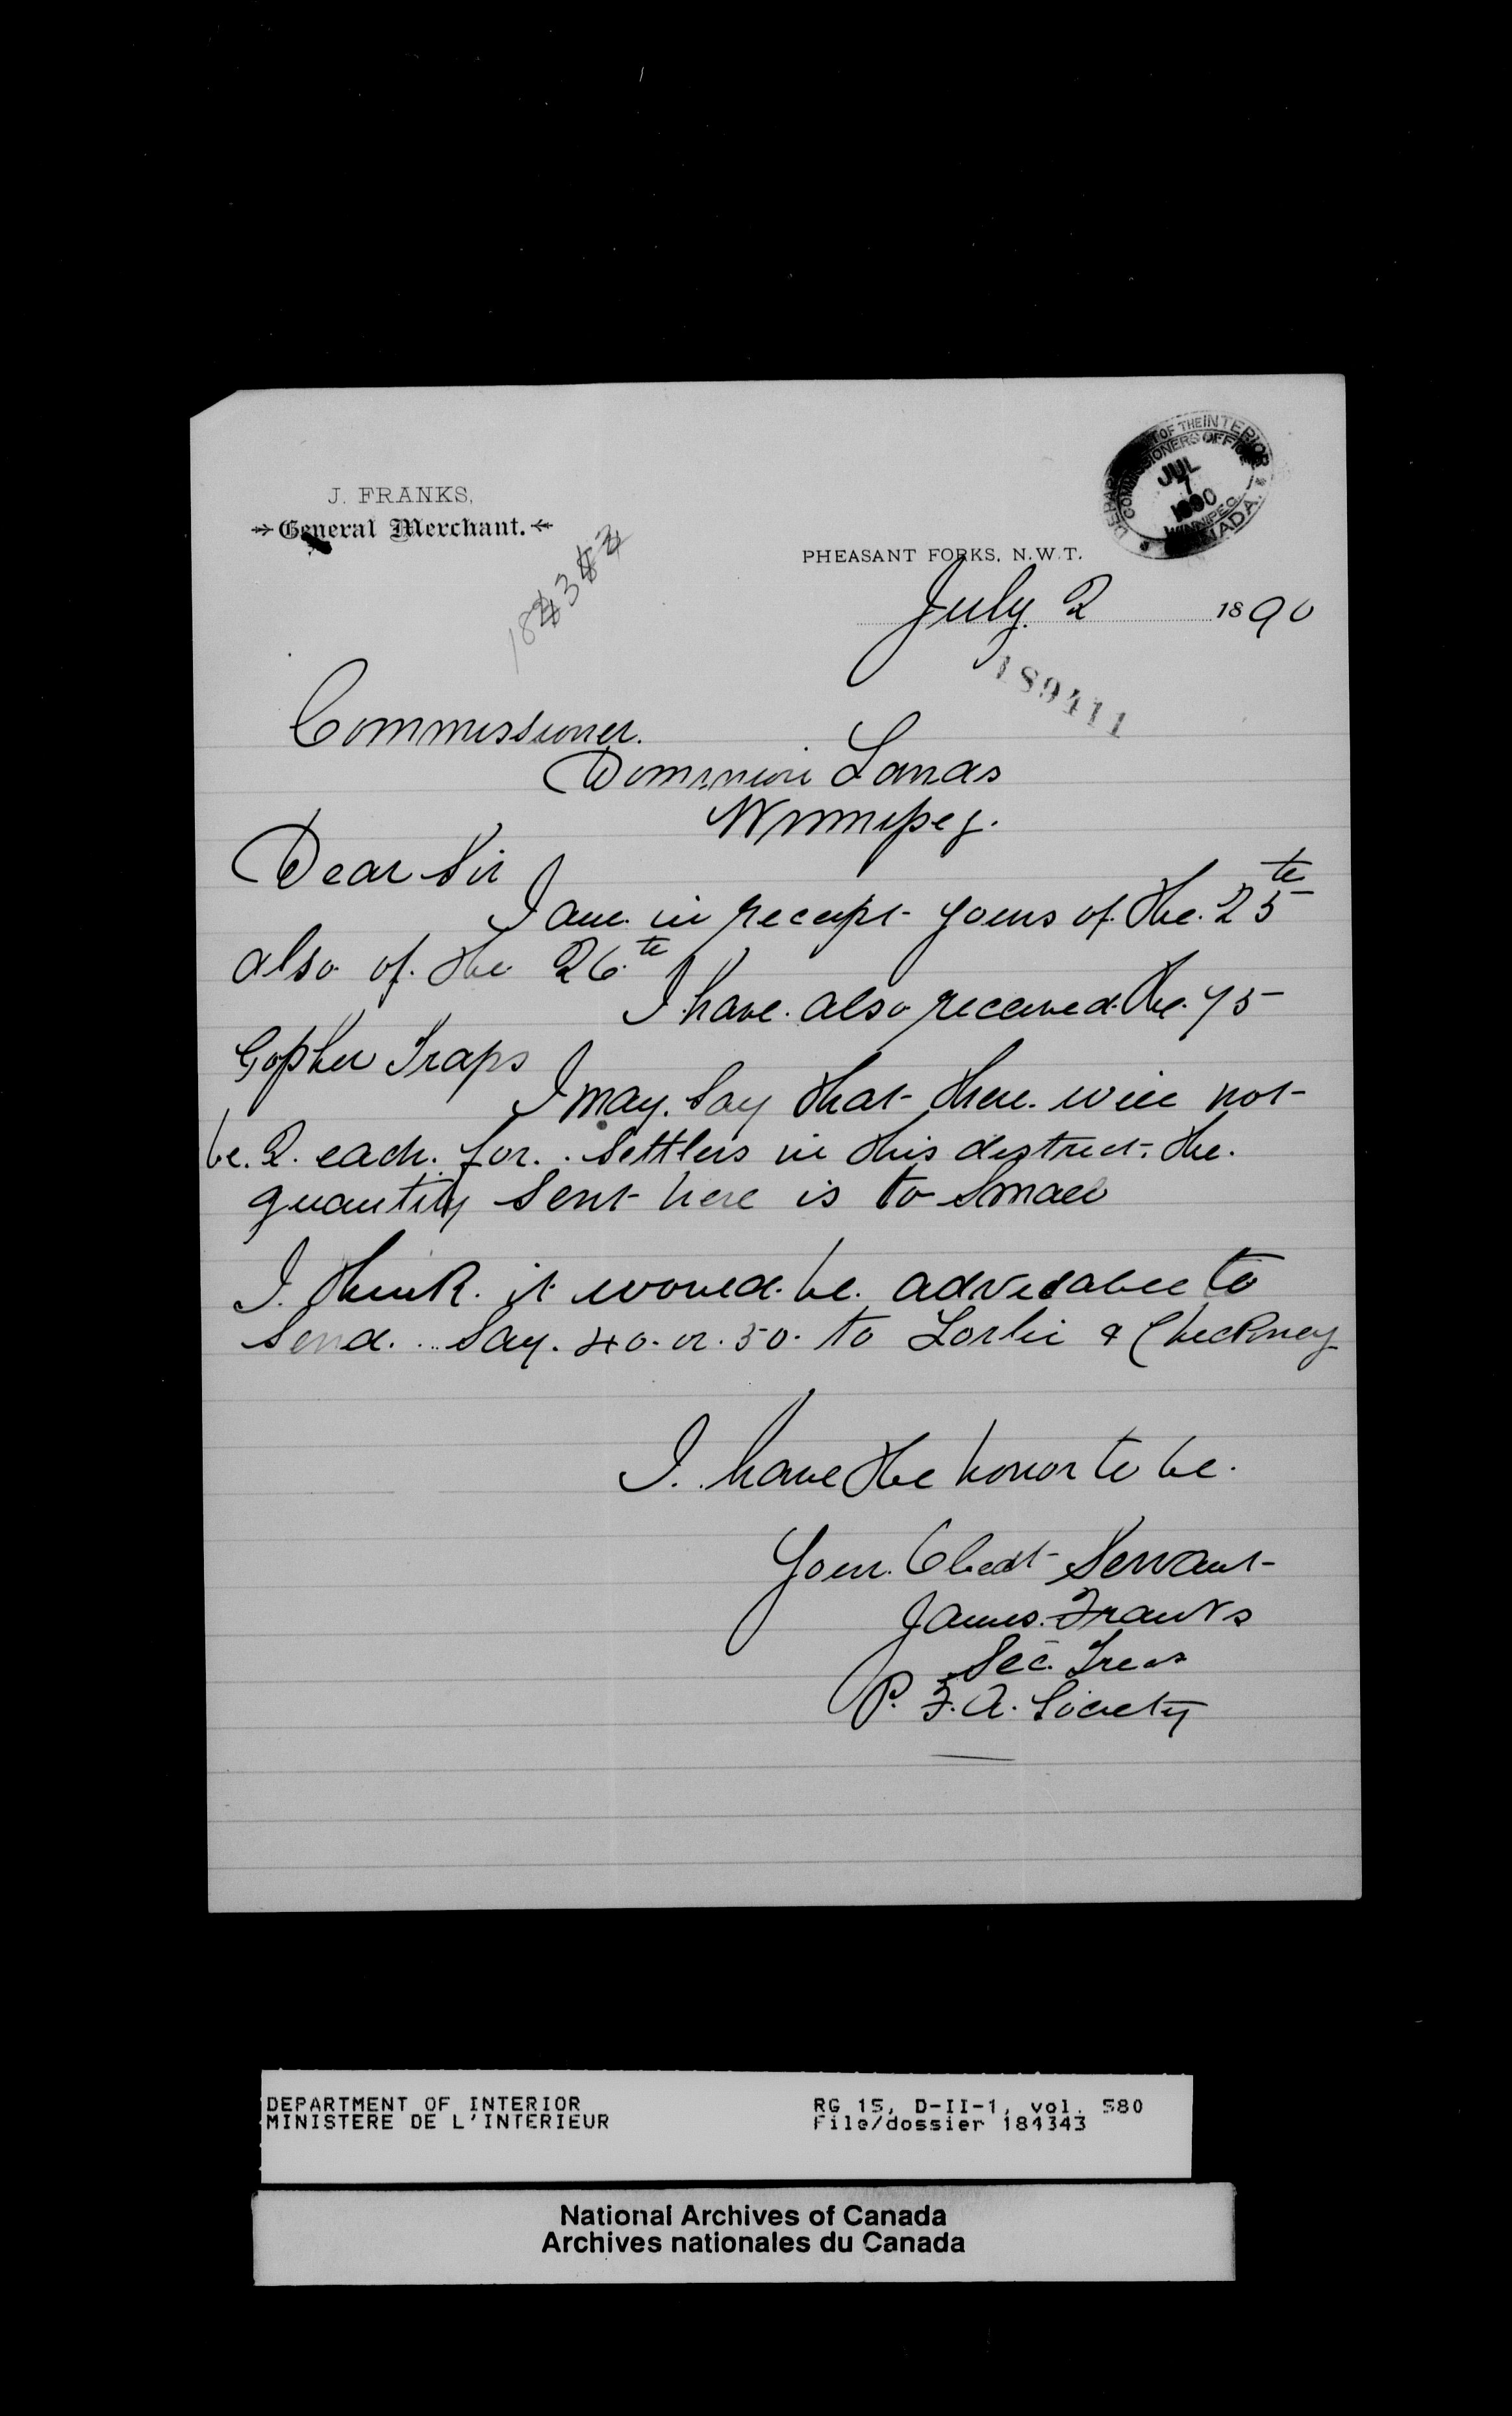 J. FRANKS,
General Merchant.
DEPARTMENT OF THE INTERIOR
COMMISSIONERS OFFICE
JUL
7
1890
WINNIPEG
CANADA.
PHEASANT FORKS, N.W.T.
July 2 1890
189411
Commissioner.
Dominion Lands
Winnipeg.
Dear Sir
I am in receipt yours of the 25th
also of the 26th
I have also received the 75
Gopher Traps
I may Say that there will not
be 2 each for Settlers in this district, the
quantity Sent here is to Small
I think it would be advisable to
Send Say 40 or 50 to Lorlie &
I have the honor to be
Your Obedt Servant
James Franks
Sec. Treas
P. F. A. Society
DEPARTMENT OF INTERIOR RG 15, D-II-1, vol. 580
MINISTERE DE L'INTERIEUR File/dossier 184343
National Archives of Canada
Archives nationales du Canada